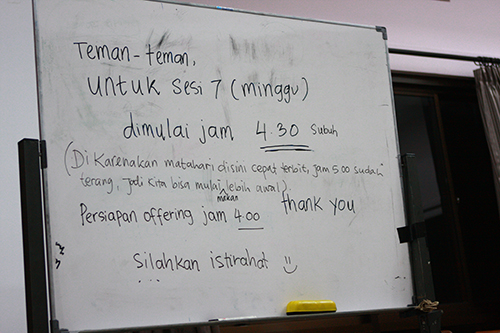 Teman-teman,
Untuk sesi 7 (minggu)
dimulai jam 4.30 subuh
(Di karenakan matahari disini cepat terbit, jam 5 00 sudah
terang, jadi kita bisa mulai makan lebih awal).
Persiapan offering jam 4.00 thank you
Silahkan istirahat